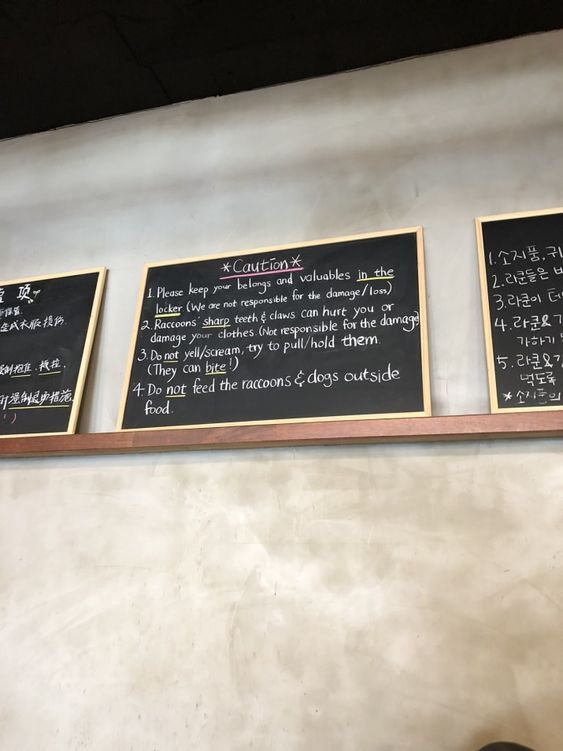 *Caution*
1. Please keep your belongs and valuables in the
locker (We are not responsible for the damage/loss)
2. Raccoons' sharp teeth & claws can hurt you or
damage your clothes. (Not responsible for the damage)
3. Do not yell/scream, try to pull/hold them.
(They can bite!)
4. Do not feed the raccoons & dogs outside
food.
项
衣服损伤.
1. 소지품, 귀
2. 라쿤들은
3. 라쿤이
4. 라쿤&
가하기
5. 라쿤&
먹도록